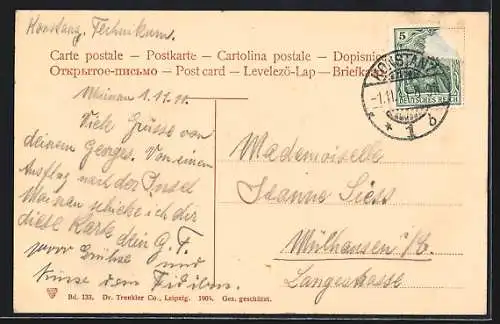 Konstanz, Technikum.
Carte postale – Postkarte – Cartolina postale – Dopisnice
Открытое-письмо – Post card – Levelezö-Lap – Briefka
5
DEUTSCHES REICH
KONSTANZ
-1.11.
* 1 b
Mainau 1.11.11.
Viele Grüsse von
deinem Georges. Von einem
Ausflug nach der Insel
Mainau schicke ich dir
diese Karte dein G. F.
Grüsse und
Küsse dein
Mademoiselle
Jeanne Siess
Mülhausen i/E.
Langestrasse
Bd. 133. Dr. Trenkler Co., Leipzig. 1904. Ges. geschützt.